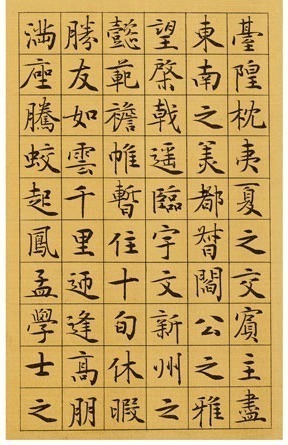 臺隍枕夷夏之交賓主盡
東南之美都督閻公之雅
望棨戟遥臨宇文新州之
懿範襜帷暫住十旬休暇
勝友如雲千里逈逢高朋
滿座騰蛟起鳳孟學士之